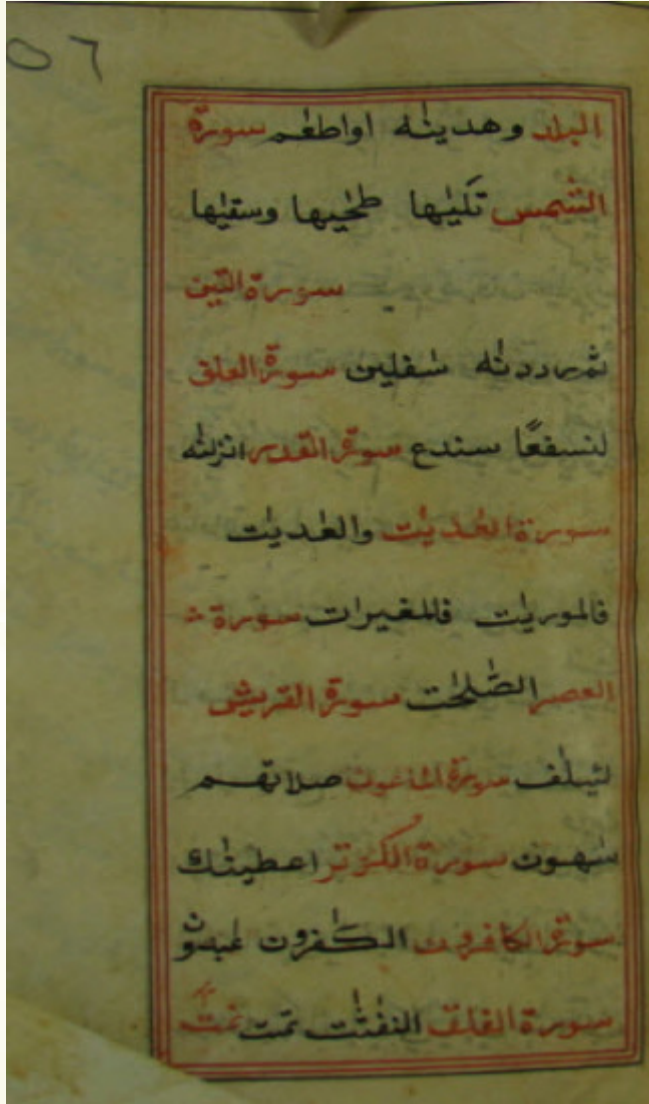 ٥٦
البلد وهدينٰه اواطعٰم سورة
الشمس تلٰيها طحٰيها وسقيٰها
سورة التين
ثم رددنٰه سٰفلين سورة العلق
لنسفعًا سندع سورة القدر انزلنٰه
سورة العٰديٰت والعٰديٰت
فالموريٰت فالمغيرات سورة
العصر الصّٰلحٰت سورة القريش
لئيلٰف سورة الماعون صلاتهم
سٰهون سورة الكوثر اعطينٰك
سورة الكافرون الكٰفرون عٰبدون
سورة الفلق النفّٰثٰت تمت تمت